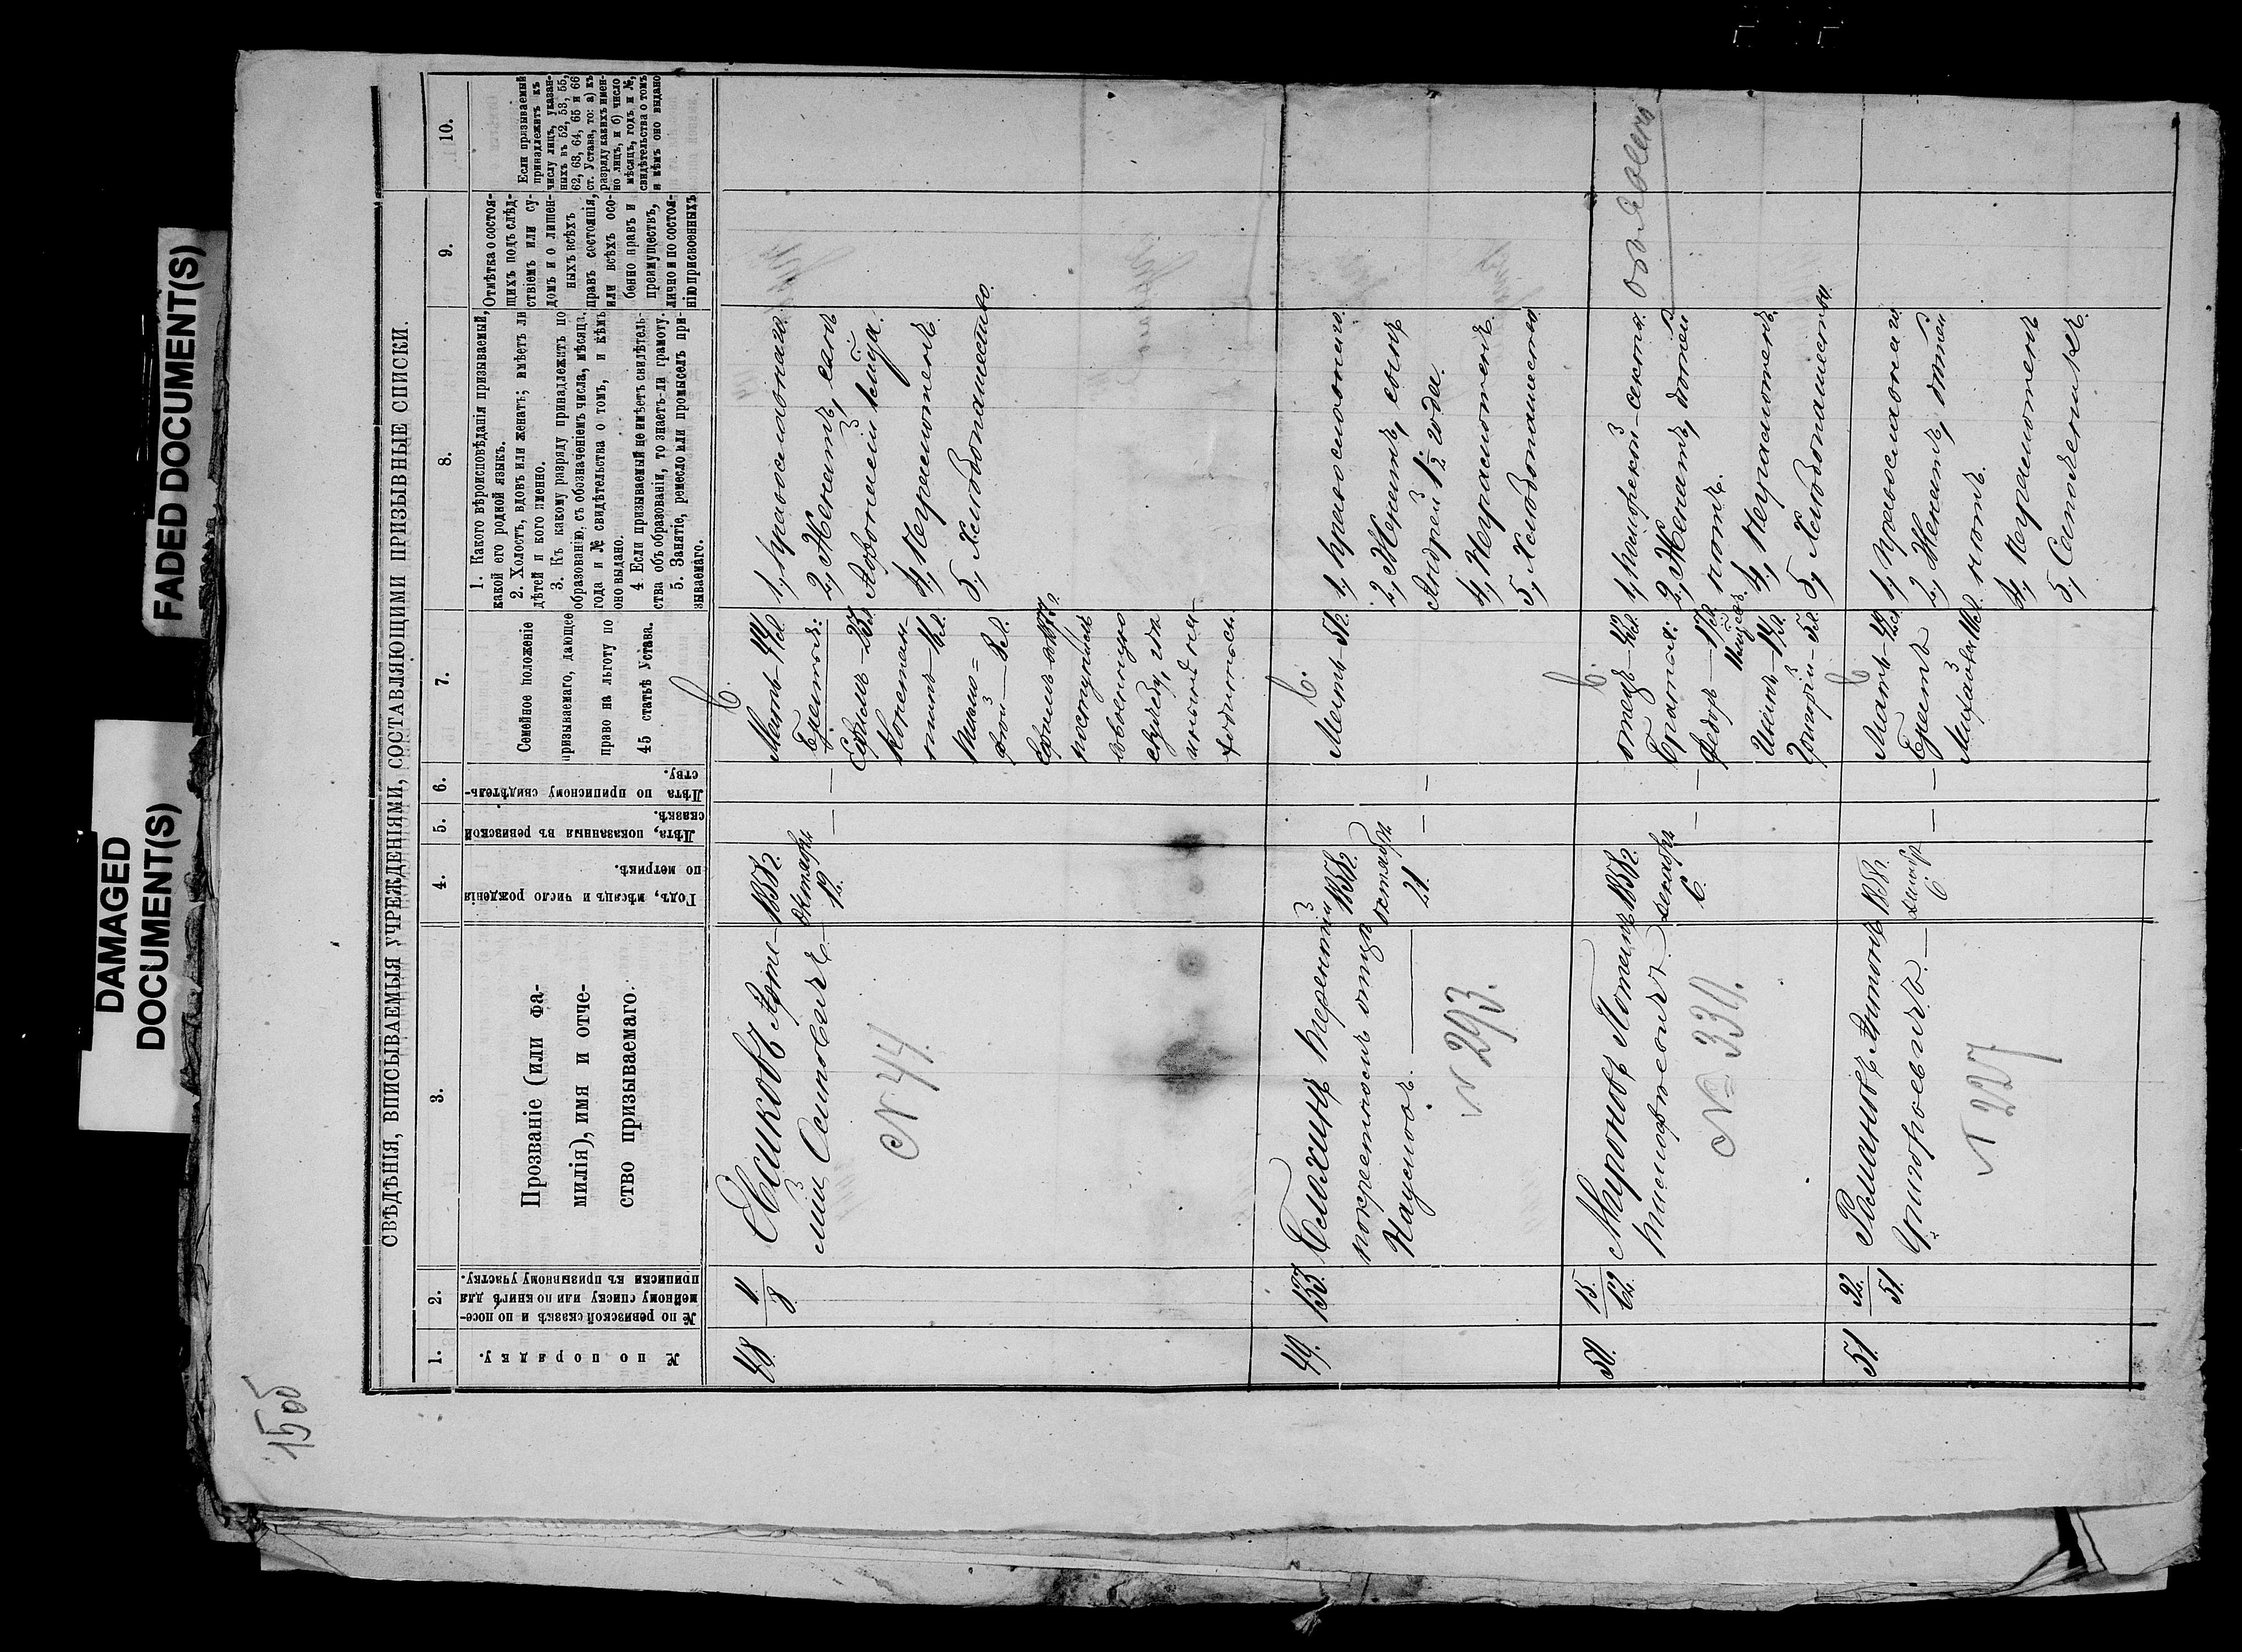 DAMAGED
DOCUMENT(S)
FADED DOCUMENT(S)
15об
СВѢДѢНІЯ, ВПИСЫВАЕМЫЯ УЧРЕЖДЕНІЯМИ, СОСТАВЛЯЮЩИМИ ПРИЗЫВНЫЕ СПИСКИ.
1.
2.
3.
4.
5.
6.
7.
8.
9.
10.
№ по порядку.
№ по ревизской сказкѣ и по посе-
мейному списку или по книгѣ для
приписки къ призывному участку.
Прозваніе (или фа-
милія), имя и отче-
ство призываемаго.
Годъ, мѣсяцъ и число рожденія
по метрикѣ.
Лѣта, показанныя въ ревизской
сказкѣ.
Лѣта по приписному свидѣтель-
ству.
Семейное положеніе
призываемаго, дающее
право на льготу по
45 статьѣ Устава.
1. Какого вѣроисповѣданія призываемый,
какой его родной языкъ.
2. Холостъ, вдовъ или женатъ; имѣетъ ли
дѣтей и кого именно.
3. Къ какому разряду принадлежитъ по
образованію, съ обозначеніемъ числа, мѣсяца,
года и № свидѣтельства о томъ, и кѣмъ
оно выдано.
4. Если призываемый не имѣетъ свидѣтель-
ства объ образованіи, то знаетъ-ли грамоту.
5. Занятіе, ремесло или промыселъ при-
зываемаго.
Отмѣтка о состоя-
щихъ подъ слѣд-
ствіемъ или су-
домъ и о лишен-
ныхъ всѣхъ
правъ состоянія,
или всѣхъ осо-
бенно правъ и
преимуществъ,
лично и по состоя-
нію присвоенныхъ
Если призываемый
принадлежитъ къ
числу лицъ, указан-
ныхъ въ 52, 53, 55,
62, 63, 64, 65 и 66
ст. Устава, то: а) къ
разряду какихъ имен-
но лицъ, и б) число
мѣсяцъ, годъ и №,
свидѣтельства о томъ
и кѣмъ оно выдано
48.
11
8.
Арте-
мій Осиповичъ.
N 44.
1858 г.
Октября
12.
—
—
Мать 44 л.
Братья:
Ефимъ – 23 л.
Констан-
тинъ
Тимо=
фей – 8 л.
Ефимъ
поступилъ
въ военную
службу, гдѣ
и нынѣ на-
ходится.
1, Православнаго.
2, Женатъ, сынъ
Афонасій
4, Неграмотенъ.
5, Хлебопашество.
49.
133.
Блохинъ Терентій
по крестномъ отцѣ
Наумовъ.
N 293.
1858 г.
октября
21.
—
—
Мать 51 л.
1, Православнаго.
2, Женатъ, сынъ
Андрей 1½ года.
4, Неграмотенъ.
5, Хлебопашество
50.
15
62.
Мироновъ Потапъ
Тимофѣевичъ.
№ 334.
1858 г.
Декабря
6.
—
—
отецъ
Братья:
Федоръ – 17 л.
Иванъ – 14 л.
Григорій – 5 л.
1, секты.
2, Женатъ, дѣтей
нѣтъ.
4, Неграмотенъ.
5, Хлебопашество.
51.
32.
51.
Романовъ Антонъ
Григорьевичъ.
N 227
1858 г.
Декабря
6.
—
—
Мать
Братъ
Михайла
1, Православнаго
2, Женатъ, дѣтей
нѣтъ.
4, Неграмотенъ
5, Сапожникъ.